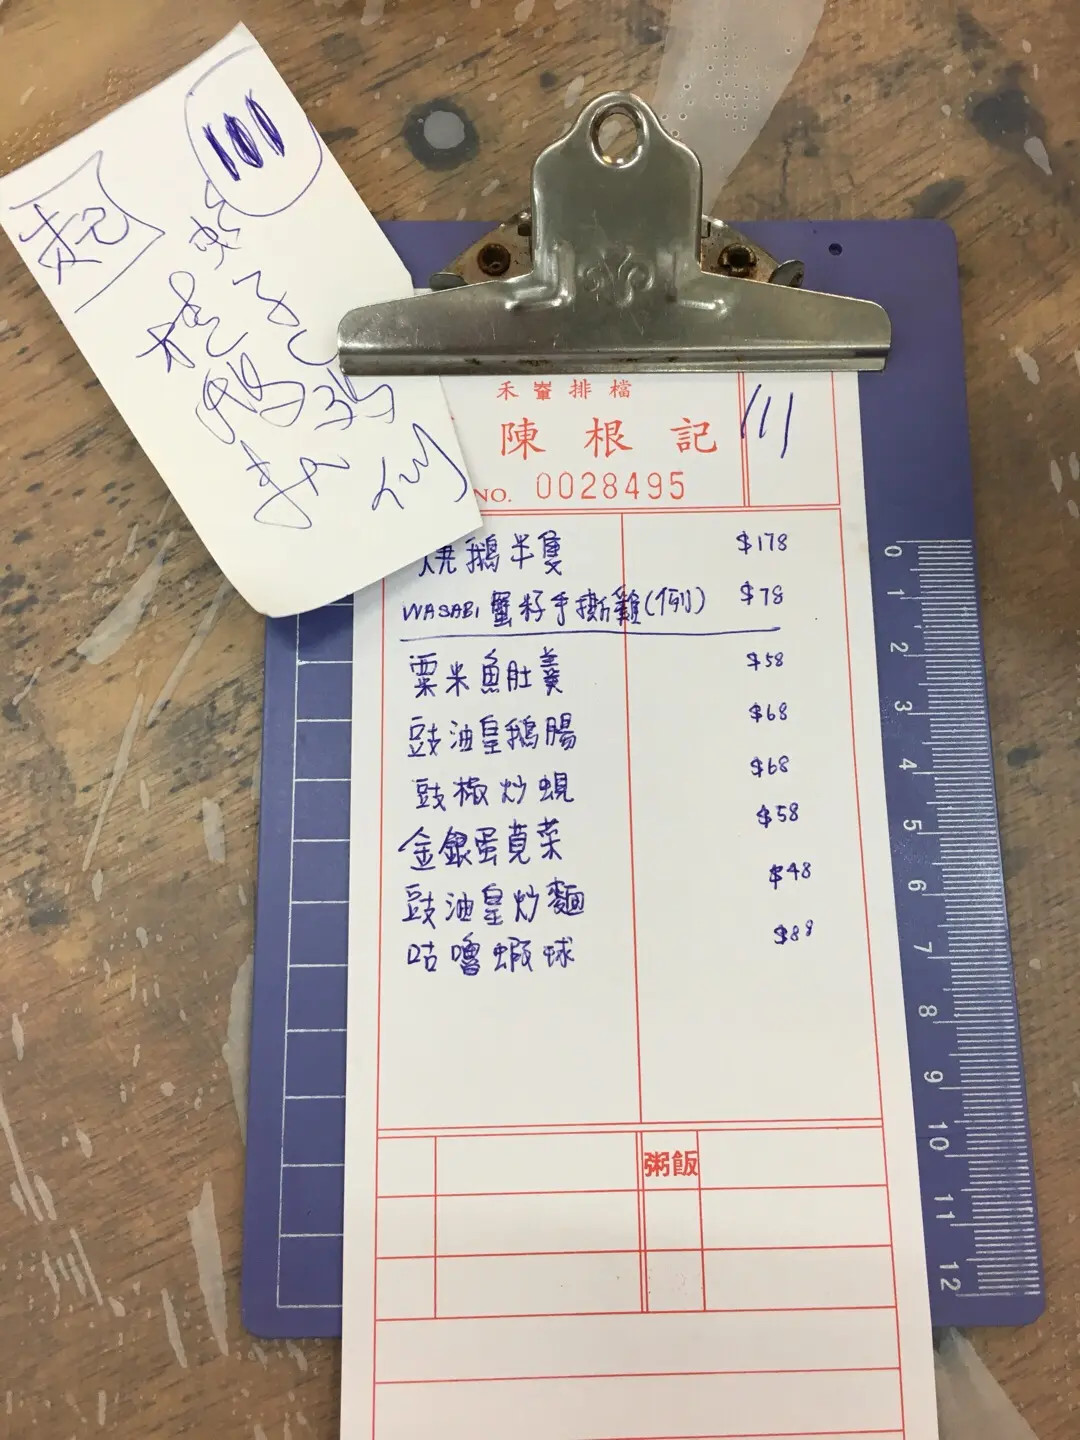 101
起
禾輋排檔
陳根記
NO. 0028495
燒鵝半隻 $178
WASABI 蟹籽手撕雞(例) $78
粟米魚肚羹 $58
豉油皇鵝腸 $68
豉椒炒蜆 $68
金銀蛋莧菜 $58
豉油皇炒麵 $48
咕嚕蝦球 $88
粥飯
0
1
2
3
4
5
6
7
8
9
10
11
12